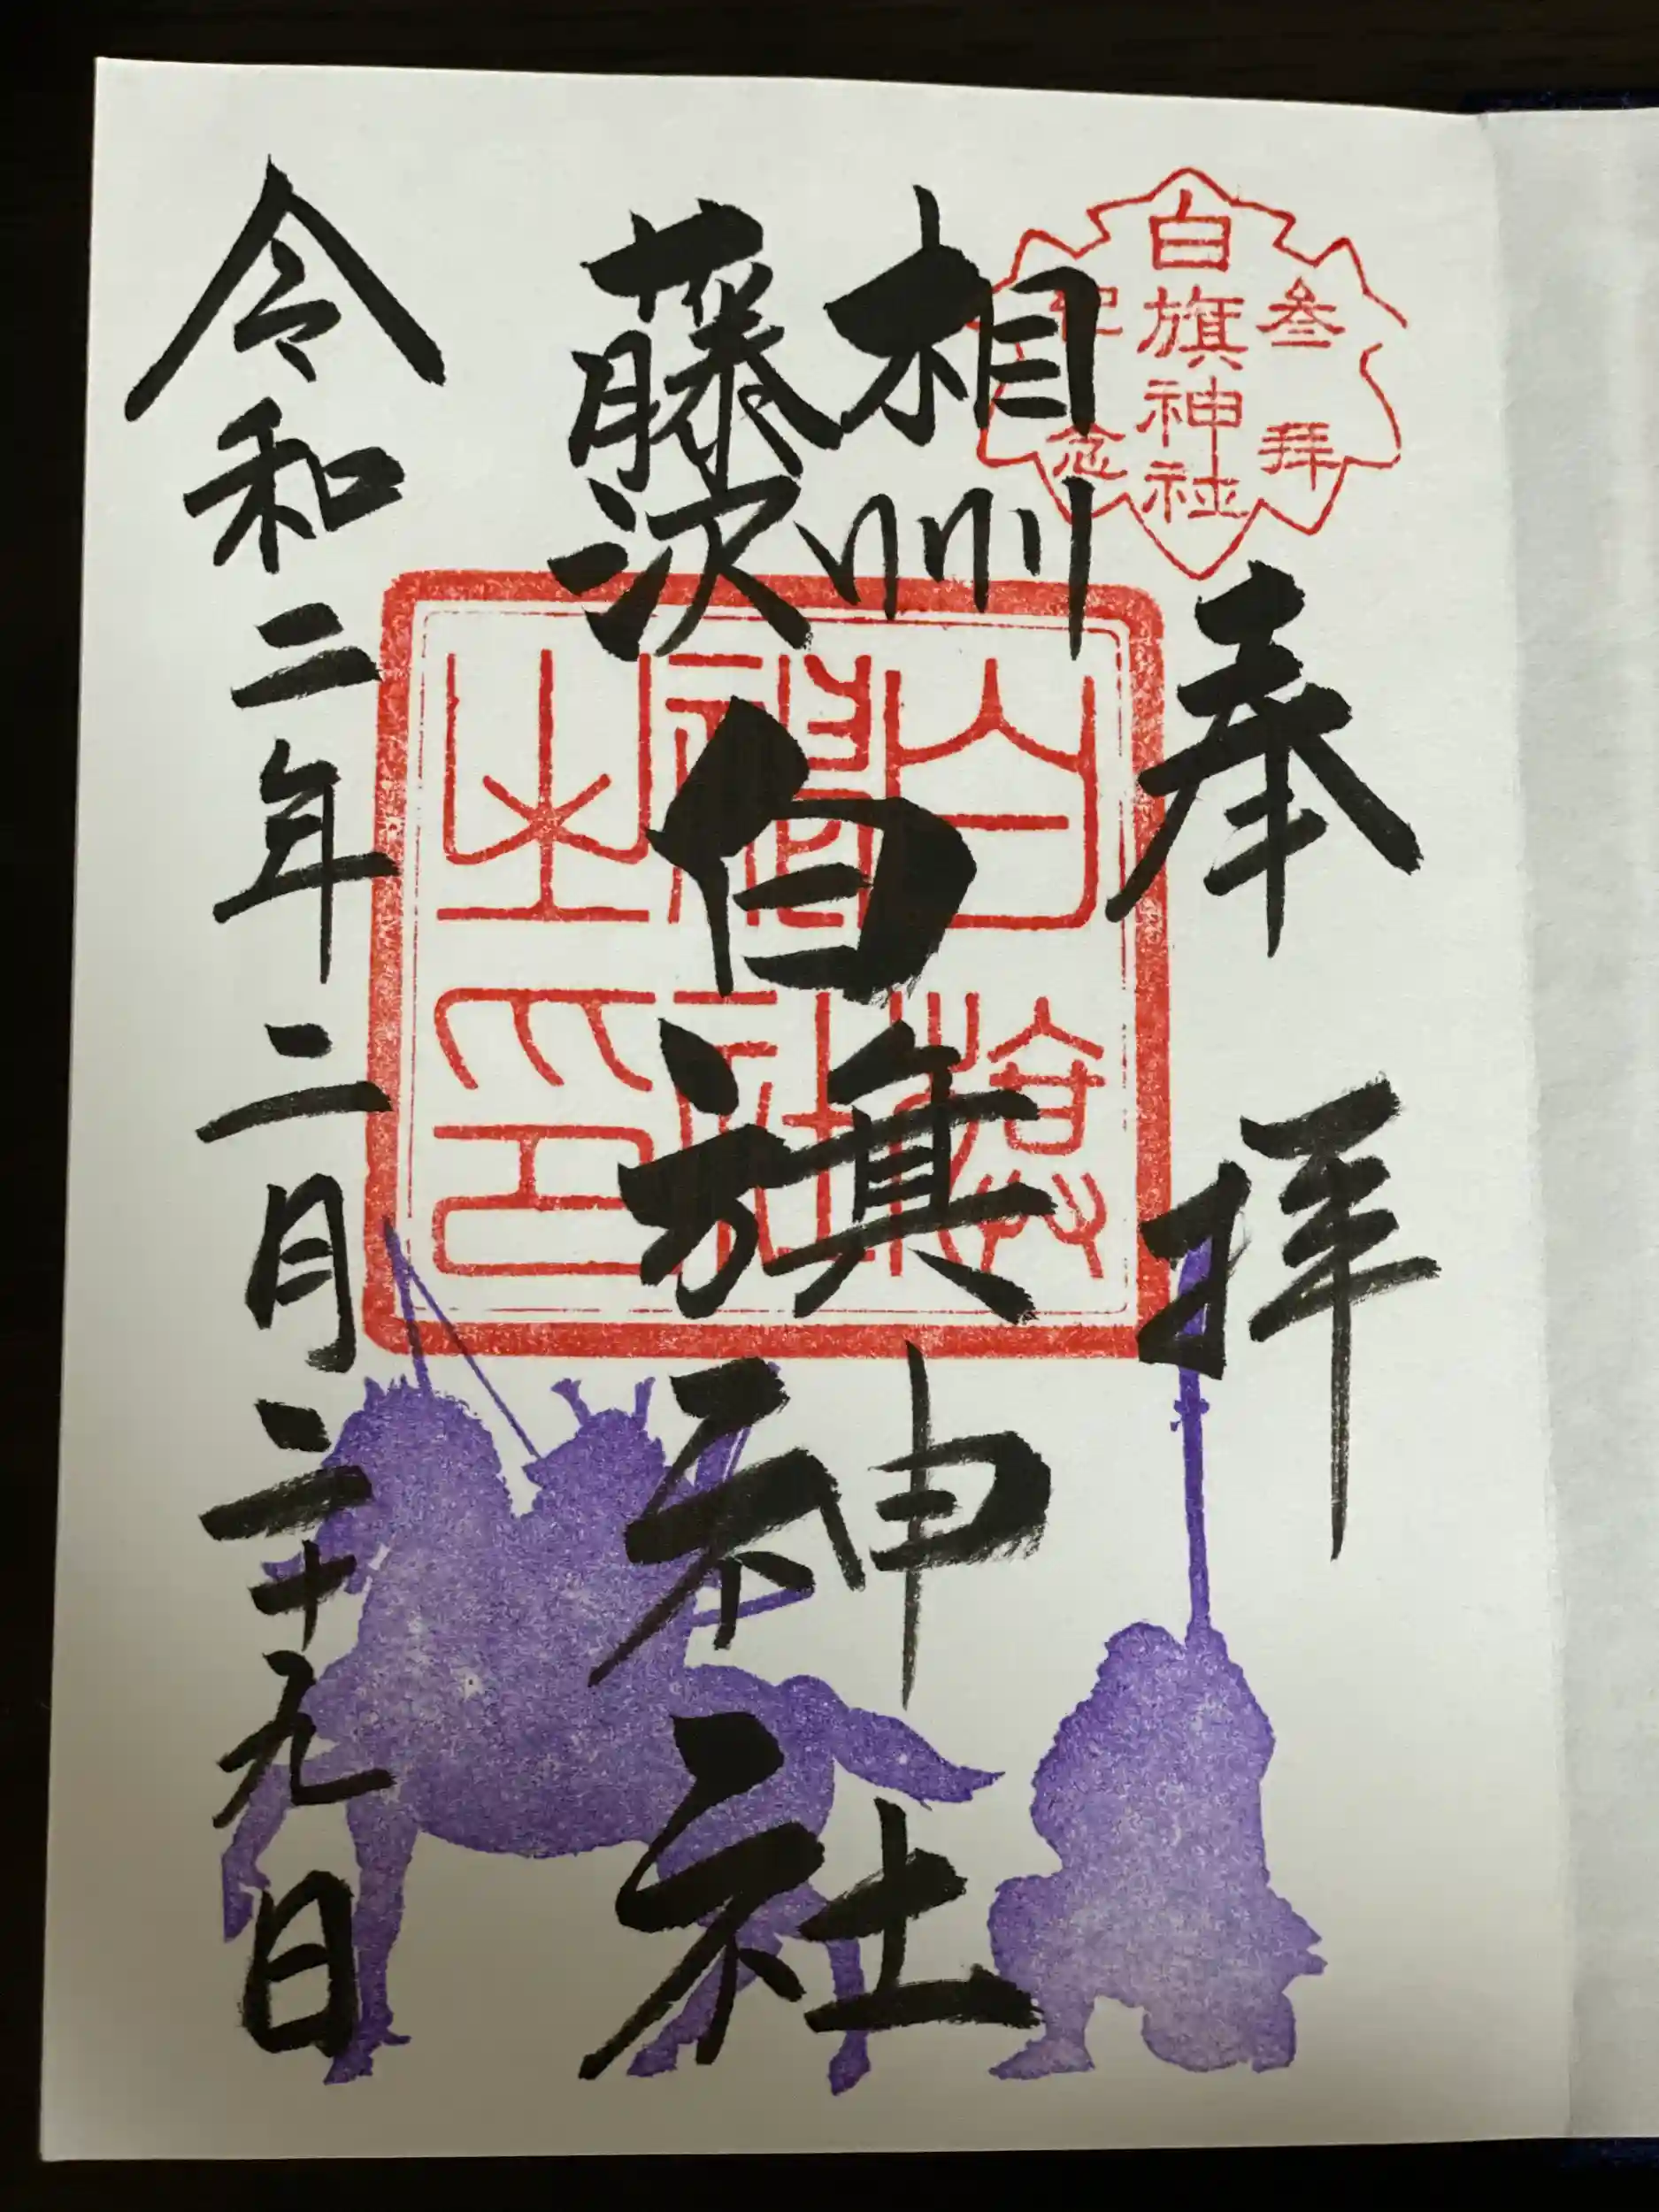 叁拝
白旗神社
記念
奉拝
相州
藤沢
白旗神社
白旗
神社
之印
令和二年二月二十九日